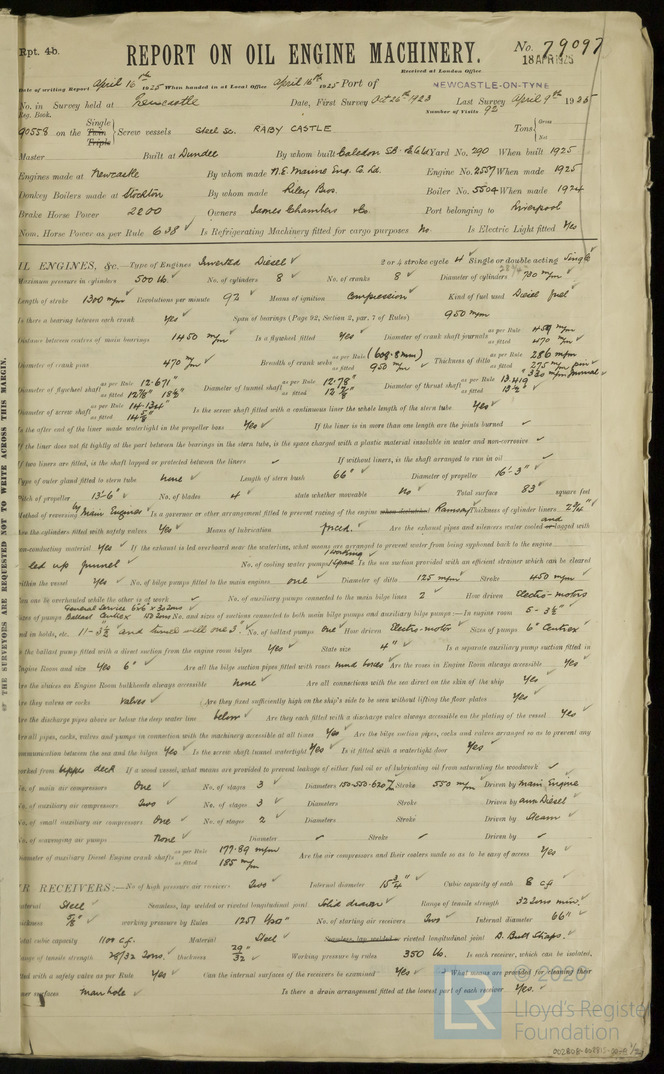 Rpt. 4b.
REPORT ON OIL ENGINE MACHINERY.
No. 79097
Received at London Office
18 APR 1925
Date of writing Report April 16th 1925 When handed in at Local Office April 16th 1925 Port of NEWCASTLE-ON-TYNE
No. in Survey held at Newcastle Date, First Survey Oct 26th 1923 Last Survey April 9th 1925
Reg. Book. Number of Visits 92
90558 on the Single Twin Triple Screw vessels Steel Sc. RABY CASTLE Tons Gross Net
Master Built at Dundee By whom built Caledon SB. & E Co Ld Yard No. 290 When built 1925
Engines made at Newcastle By whom made N.E. Marine Eng. Co. Ld. Engine No. 2557 When made 1925
Donkey Boilers made at Stockton By whom made Riley Bros. Boiler No. 5504 When made 1924
Brake Horse Power 2200 Owners James Chambers & Co. Port belonging to Liverpool
Nom. Horse Power as per Rule 638 Is Refrigerating Machinery fitted for cargo purposes No Is Electric Light fitted Yes
OIL ENGINES, &c.—Type of Engines Inverted Diesel 2 or 4 stroke cycle 4 Single or double acting Single
Maximum pressure in cylinders 500 lb. No. of cylinders 8 No. of cranks 8 Diameter of cylinders 730 m/m
Length of stroke 1300 m/m Revolutions per minute 92 Means of ignition Compression Kind of fuel used Diesel fuel
Is there a bearing between each crank Yes Span of bearings (Page 92, Section 2, par. 7 of Rules) 950 m/m
Distance between centres of main bearings 1450 m/m Is a flywheel fitted Yes Diameter of crank shaft journals as per Rule 459 m/m as fitted 470 m/m
Diameter of crank pins 470 m/m Breadth of crank webs as per Rule (608.8 m/m) as fitted 950 m/m Thickness of ditto as per Rule 286 m/m as fitted 275 m/m pin 330 m/m journal
Diameter of flywheel shaft as per Rule 12.671" as fitted 12 7/8" 18 1/2" Diameter of tunnel shaft as per Rule 12.78" as fitted 12 7/8" Diameter of thrust shaft as per Rule 13.419 as fitted 13 1/2"
Diameter of screw shaft as per Rule 14.134" as fitted 14 5/8" Is the screw shaft fitted with a continuous liner the whole length of the stern tube Yes
Is the after end of the liner made watertight in the propeller boss Yes If the liner is in more than one length are the joints burned
If the liner does not fit tightly at the part between the bearings in the stern tube, is the space charged with a plastic material insoluble in water and non-corrosive
If two liners are fitted, is the shaft lapped or protected between the liners If without liners, is the shaft arranged to run in oil
Type of outer gland fitted to stern tube None Length of stern bush 66" Diameter of propeller 16'-3"
Pitch of propeller 13'-6" No. of blades 4 state whether moveable No Total surface 83 square feet
Method of reversing by Main Engines Is a governor or other arrangement fitted to prevent racing of the engine when declutched Ramsay Thickness of cylinder liners 2 3/4"
Are the cylinders fitted with safety valves Yes Means of lubrication forced Are the exhaust pipes and silencers water cooled or and lagged with
non-conducting material Yes If the exhaust is led overboard near the waterline, what means are arranged to prevent water from being syphoned back to the engine
led up funnel No. of cooling water pumps 1 Working 1 Spare Is the sea suction provided with an efficient strainer which can be cleared
within the vessel Yes No. of bilge pumps fitted to the main engines one Diameter of ditto 125 m/m Stroke 450 m/m
Can one be overhauled while the other is at work No. of auxiliary pumps connected to the main bilge lines 2 How driven Electro-motors
Sizes of pumps General Service 6x6 x 30 tons Ballast Centrex No. and sizes of suctions connected to both main bilge pumps and auxiliary bilge pumps:—In engine room 5-3 1/2"
and in holds, etc. 11-3 1/2" and tunnel well one 3" No. of ballast pumps One How driven Electro-motor Sizes of pumps 6" Centrex
Is the ballast pump fitted with a direct suction from the engine room bilges Yes State size 4" Is a separate auxiliary pump suction fitted in
Engine Room and size Yes 6" Are all the bilge suction pipes fitted with roses mud boxes Are the roses in Engine Room always accessible Yes
Are the sluices on Engine Room bulkheads always accessible None Are all connections with the sea direct on the skin of the ship Yes
Are they valves or cocks Valves Are they fixed sufficiently high on the ship's side to be seen without lifting the floor plates Yes
Are the discharge pipes above or below the deep water line below Are they each fitted with a discharge valve always accessible on the plating of the vessel Yes
Are all pipes, cocks, valves and pumps in connection with the machinery accessible at all times Yes Are the bilge suction pipes, cocks and valves arranged so as to prevent any
communication between the sea and the bilges Yes Is the screw shaft tunnel watertight Yes Is it fitted with a watertight door Yes
worked from Upper deck If a wood vessel, what means are provided to prevent leakage of either fuel oil or of lubricating oil from saturating the woodwork
No. of main air compressors One No. of stages 3 Diameters 150-550-620 Stroke 550 m/m Driven by Main Engine
No. of auxiliary air compressors Two No. of stages 3 Diameters Stroke Driven by aux Diesel
No. of small auxiliary air compressors One No. of stages 2 Diameters Stroke Driven by Steam
No. of scavenging air pumps None Diameter Stroke Driven by
Diameter of auxiliary Diesel Engine crank shafts as per Rule 177.89 m/m as fitted 185 m/m Are the air compressors and their coolers made so as to be easy of access Yes
AIR RECEIVERS:—No. of high pressure air receivers Two Internal diameter 15 3/4" Cubic capacity of each 8 cft
Material Steel Seamless, lap welded or riveted longitudinal joint Solid drawn Range of tensile strength 32 tons min.
thickness 5/8" working pressure by Rules 1257 lb/□" No. of starting air receivers Two Internal diameter 66"
Total cubic capacity 1100 c.f. Material Steel Seamless, lap welded or riveted longitudinal joint D. Butt Straps.
Range of tensile strength 28/32 tons. thickness 29/32" Working pressure by rules 350 lb. Is each receiver, which can be isolated,
fitted with a safety valve as per Rule Yes Can the internal surfaces of the receivers be examined Yes What means are provided for cleaning their
inner surfaces manhole Is there a drain arrangement fitted at the lowest part of each receiver Yes.
OF THE SURVEYORS ARE REQUESTED NOT TO WRITE ACROSS THIS MARGIN.
LR © 2020
Lloyd's Register
Foundation